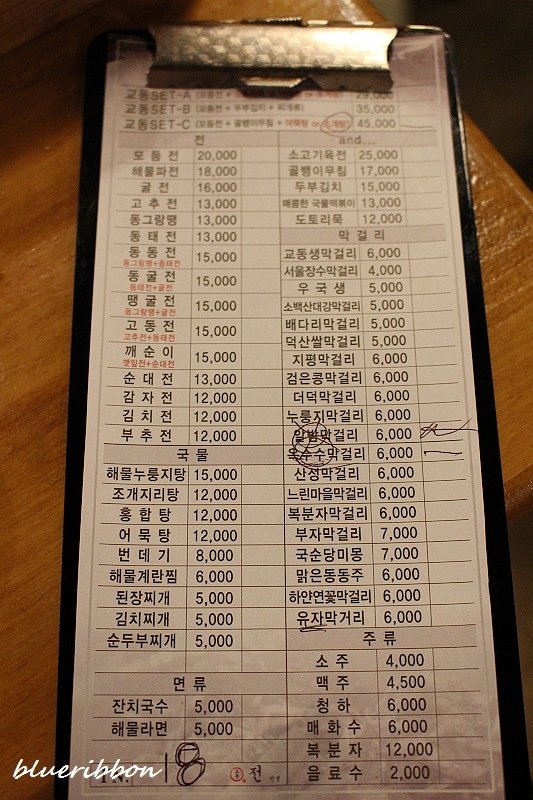 교동SET-A (모듬전 + 29,000
교동SET-B (모듬전 + 두부김치 + 찌개류) 35,000
교동SET-C (모듬전 + 골뱅이무침 + 어묵탕 or 조개탕) 45,000
전
모 듬 전 20,000
해물파전 18,000
굴 전 16,000
고 추 전 13,000
동그랑땡 13,000
동 태 전 13,000
동 동 전 15,000
동그랑땡+동태전
동 굴 전 15,000
동태전+굴전
땡 굴 전 15,000
동그랑땡+굴전
고 동 전 15,000
고추전+동태전
깨 순 이 15,000
깻잎전+순대전
순 대 전 13,000
감 자 전 12,000
김 치 전 12,000
부 추 전 12,000
국 물
해물누룽지탕 15,000
조개지리탕 12,000
홍 합 탕 12,000
어 묵 탕 12,000
번 데 기 8,000
해물계란찜 6,000
된장찌개 5,000
김치찌개 5,000
순두부찌개 5,000
면 류
잔치국수 5,000
해물라면 5,000
and...
소고기육전 25,000
골뱅이무침 17,000
두부김치 15,000
매콤한 국물떡볶이 13,000
도토리묵 12,000
막 걸 리
교동생막걸리 6,000
서울장수막걸리 4,000
우 국 생 5,000
소백산대강막걸리 5,000
배다리막걸리 5,000
덕산쌀막걸리 5,000
지평막걸리 6,000
검은콩막걸리 6,000
더덕막걸리 6,000
누룽지막걸리 6,000
알밤막걸리 6,000
옥수수막걸리 6,000
산성막걸리 6,000
느린마을막걸리 6,000
복분자막걸리 6,000
부자막걸리 7,000
국순당미몽 7,000
맑은동동주 6,000
하얀연꽃막걸리 6,000
유자막거리 6,000
주 류
소 주 4,000
맥 주 4,500
청 하 6,000
매 화 수 6,000
복 분 자 12,000
음 료 수 2,000
T.N. 18
전
blueribbon